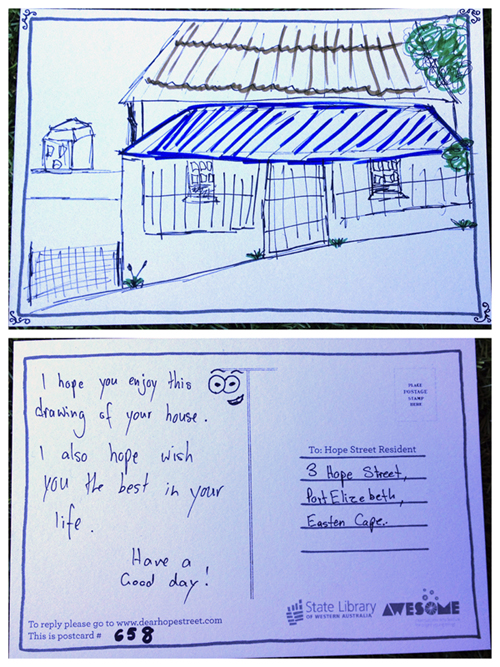 I hope you enjoy this
drawing of your house.
I also hope wish
you the best in your
life.
Have a
Good day!
To reply please go to www.dearhopestreet.com
This is postcard # 658
PLACE
POSTAGE
STAMP
HERE
To: Hope Street Resident
3 Hope Street,
Port Elizebeth,
Easten Cape.
State Library
OF WESTERN AUSTRALIA
AWESOME